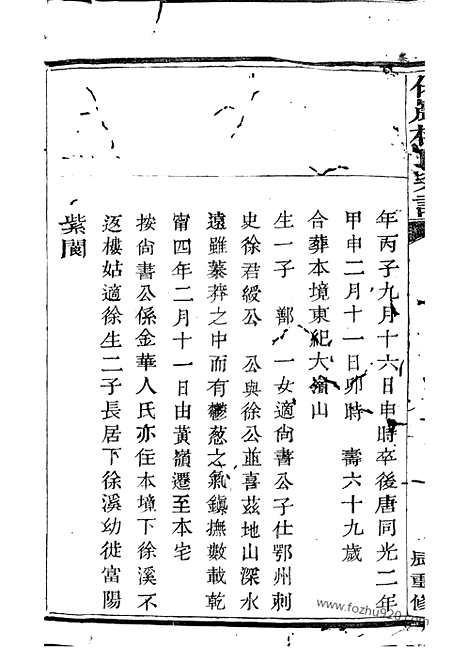 年丙子九月十六日申時卒後唐同光二年
甲申二月十一日卯時　壽六十九歲
合葬本境東紀大嶺山
生一子　鄭　一女適尙書公子仕鄂州刺
史徐君綬公　公與徐公並喜茲地山深水
遠雖蓁莽之中而有鬱葱之氣鎭撫數載乾
甯四年二月十一日由黃嶺遷至本宅
按尙書公係金華人氏亦住本境下徐溪不
返樓姑適徐生二子長居下徐溪幼徙富陽
紫閬
辰重修
www.fozhu920.com